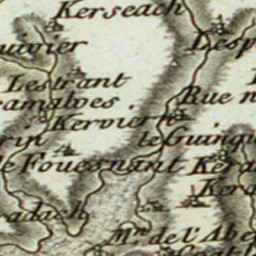 Kerseach
uivier
Lesp
Lestrant
Rue n
amalves
Kervier
rin
le Guing
le Fouesnant
Ker
adach
Mⁱⁿ de l'Abe